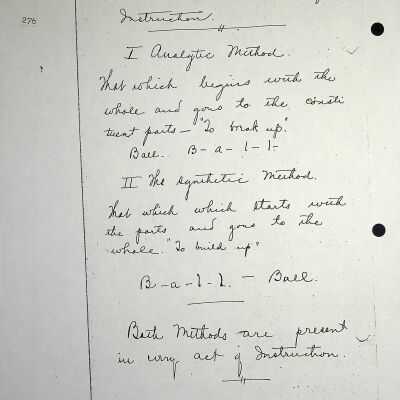 276
Instruction.
I Analytic Method.
That which begins with the
whole and goes to the consti
tuent parts - "To break up."
Ball. B-a-l-l-
II The Synthetic Method.
That which which starts with
the parts and goes to the
whole. "To build up"
B-a-l-l. - Ball.
Both Methods are present
in every act of Instruction.